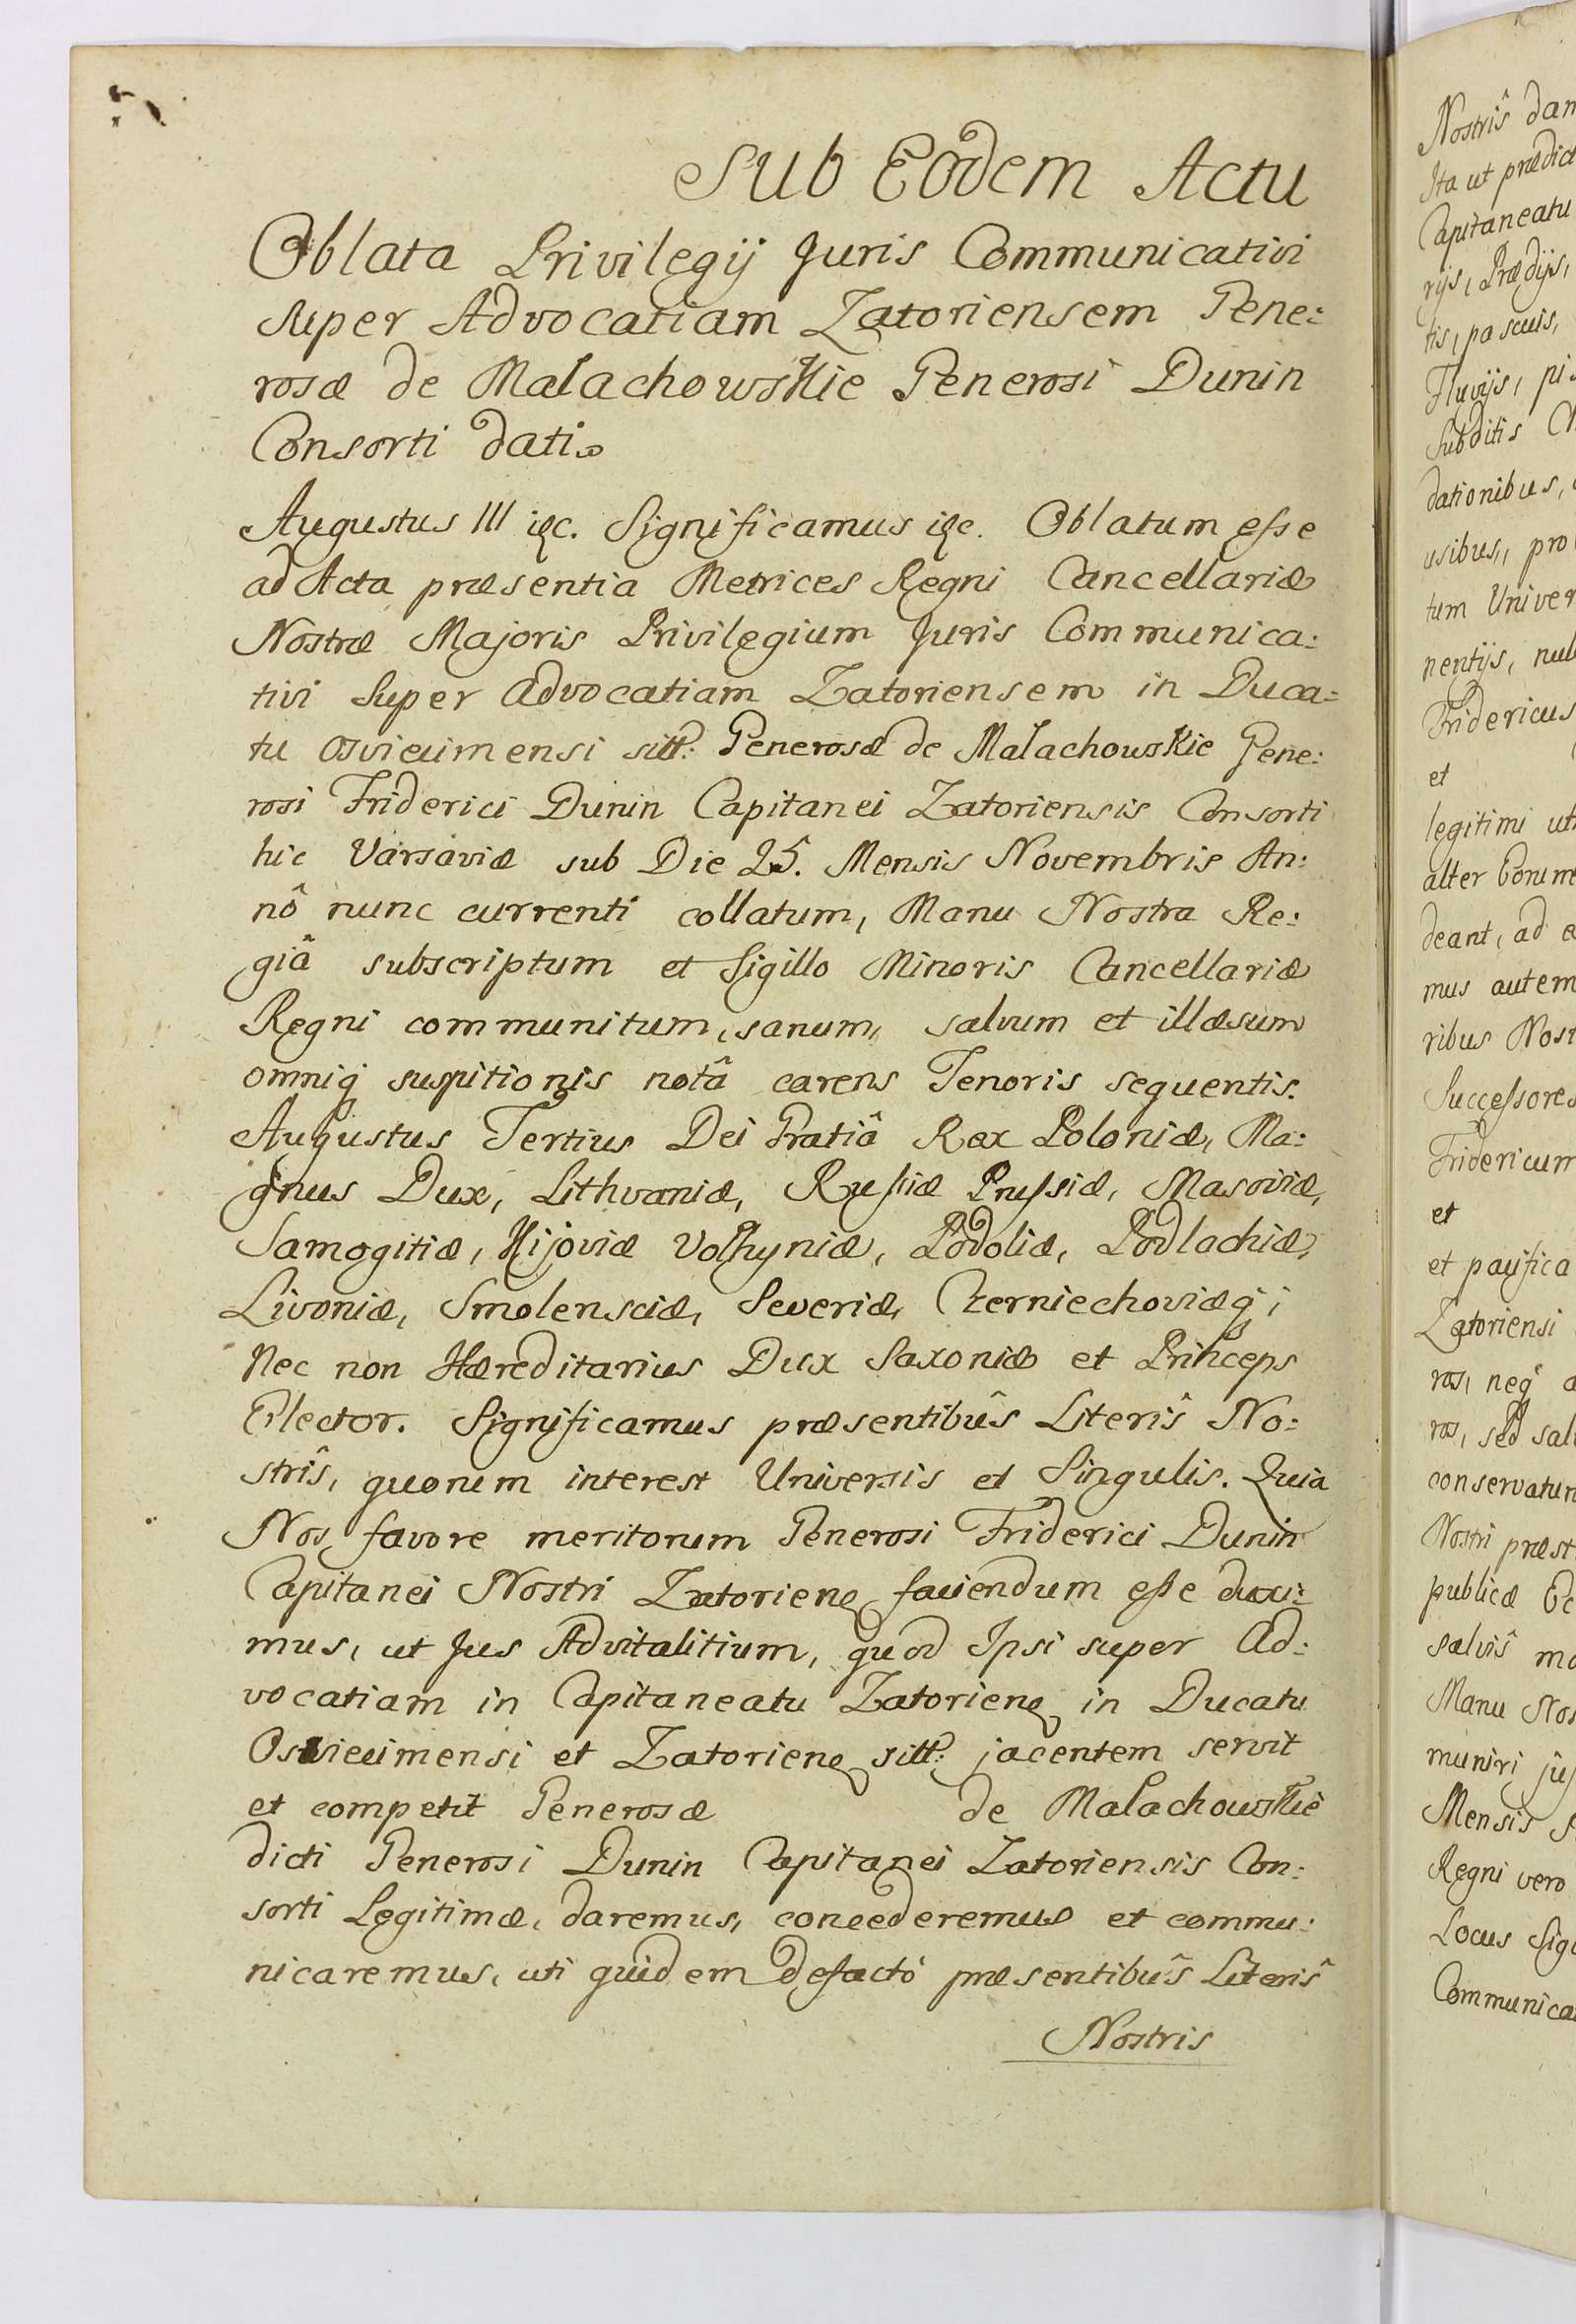 Sub Eodem Actu
Oblata Privilegij Juris Communicativi
super Advocatiam Zatoriensem Gene:
rosæ de Małachowskie Generosi Dunin
Consorti dati
Augustus III &c. Significamus &c. Oblatum esse
ad Acta præsentia Metrices Regni Cancellariæ
Nostræ Majoris Privilegium Juris Communica:
tivi super Advocatiam Zatoriensem in Duca=
tu Osviecimensi sitt: Generosæ de Małachowskie Gene:
rosi Friderici Dunin Capitanei Zatoriensis Consorti
hic Varsaviæ sub Die 25. Mensis Novembris An:
nô nunc currenti collatum, Manu Nostra Re:
giâ subscriptum et Sigillo Minoris Cancellariæ
Regni communitum, sanum, salvum et illæsum
omniq suspitionis notâ carens Tenoris sequentis.
Augustus Tertius Dei Gratiâ Rex Poloniæ, Ma:
gnus Dux, Lithvaniæ, Russiæ Prussiæ, Masoviæ,
Samogitiæ, Kijoviæ Volhyniæ, Podoliæ, Podlachiæ,
Livoniæ, Smolensciæ, Severiæ, Czerniechoviæq;
Nec non Hæreditarius Dux Saxoniæ et Princeps
Elector. Significamus præsentibûs Literîs No:
strîs, quorum interest Universis et Singulis. Quia
Nos favore meritorum Generosi Friderici Dunin
Capitanei Nostri Zatorienq faciendum esse duxi:
mus, ut Jus Advitalitium, quod Ipsi super Ad:
vocatiam in Capitaneatu Zatorienq in Ducatu
Osviecimensi et Zatorienq sitt: jacentem servit
et competit Generosæ de Małachowskie
dicti Generosi Dunin Capitanei Zatoriensis Con:
sorti Legitimæ, daremus, concederemus et commu:
nicaremus, uti quidem defactó præsentibûs Literîs
Nostris
Nostrîs dam
Ita ut prædict
Capitaneatu
rijs, Prædijs,
tis, pascuis,
Fluvijs, pis
Subditis
dationibus,
usibus, pro
tum Univer
nentijs, nul
Fridericus
et
legitimi ut
alter eorum
deant, ad
mus autem
ribus Nost
Successores
Fridericum
et
et pacifica
Zatoriensi
ros, neq a
ros, sed sal
conservatur
Nostri præst
publicæ Ec
salvîs mo
Manu Nos
muniri jus
Mensis
Regni vero
Locus Sigi
Communica